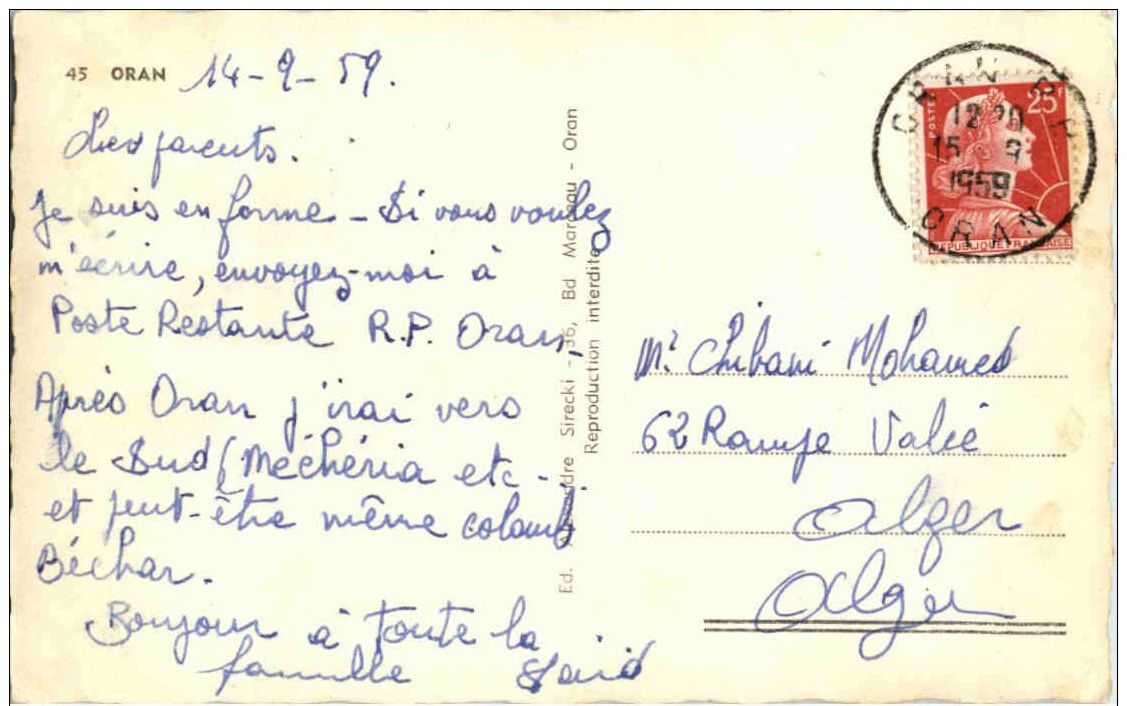 45 ORAN 14-9-59.
Les parents.
Je suis en forme - Si vous voulez
m'écrire, envoyez-moi à
Poste Restante R.P. Oran,
Après Oran j'irai vers
le Sud (Méchéria etc...
et peut-être même colomb
Béchar.
Bonjour à toute la
famille Said
Ed. Sirecki - 36, Bd Marceau - Oran
Reproduction interdite
ORAN R.P
12 20
15 9
1959
ORAN
POSTES
25F
REPUBLIQUE FRANÇAISE
Mr Chibani Mohamed
62 Rampe Valée
Alger
Alger